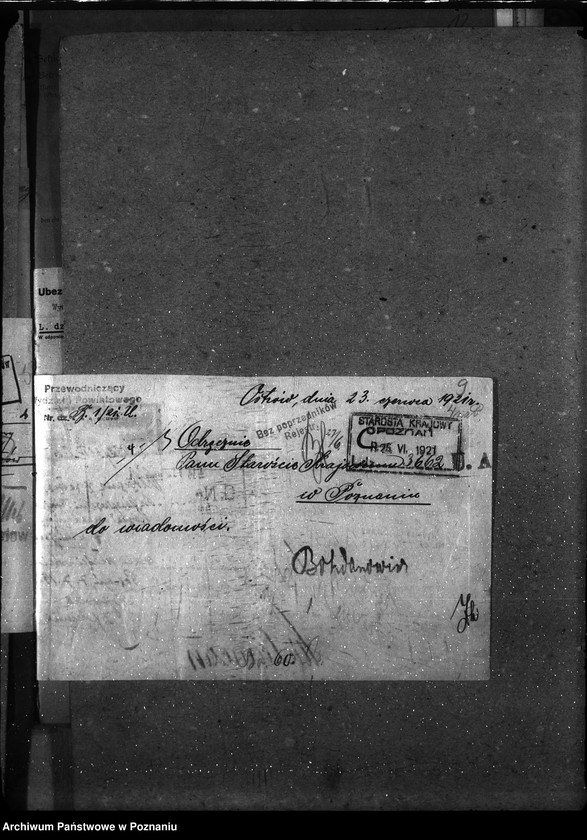 Ubez
L. dz
Przewodniczący
Wydziału Powiatowego
Nr. dz.
9
Ostrów, dnia 23 czerwca 1921 r.
Bez poprzedników
Rejestr.
27/6
STAROSTA KRAJOWY
POZNAŃ
R 25. VI. 1921
3662 D. A
Odręcznie
Panu Staroście Krajowemu
w Poznaniu
do wiadomości.
60.
Archiwum Państwowe w Poznaniu